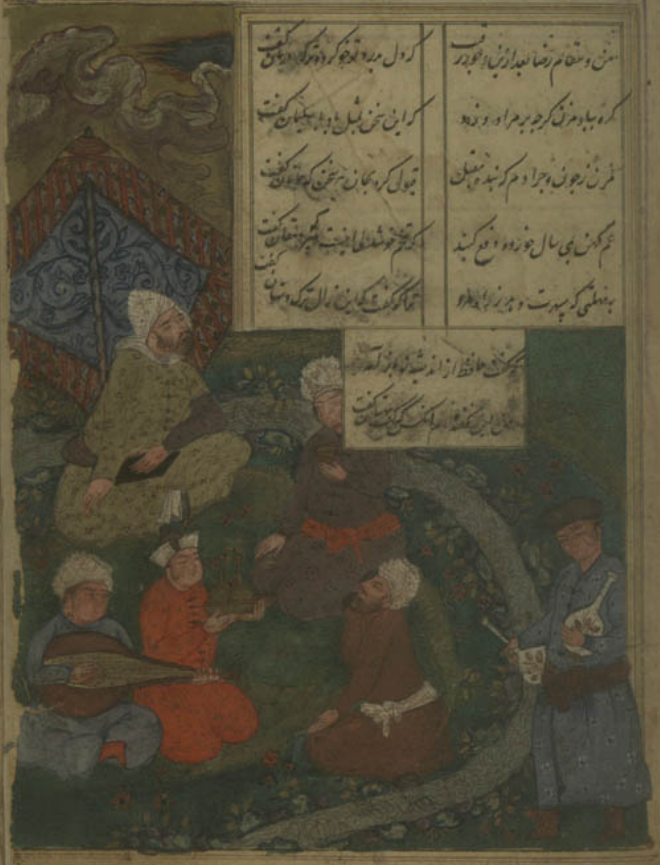 من و مقام رضا بعد ازین و رقیب که دل بدرد تو خو کرد و ترک درمان گفت
گره بباد مزن گرچه بر مراد رود که این سخن بمثل باد با سلیمان گفت
مزن ز چون و چرا دم که بنده مقبل قبول کرد بجان هر سخن که جانان گفت
غم کهن بمی سال خورده دفع کنید که تخم خوشدلی اینست پیر دهقان گفت
بمهلتی که سپهرت دهد ز راه مرو ترا که گفت که این زال ترک دستان گفت
که گفت حافظ از اندیشه تو باز آمد
من این نگفته‌ام آنکس که گفت بهتان گفت